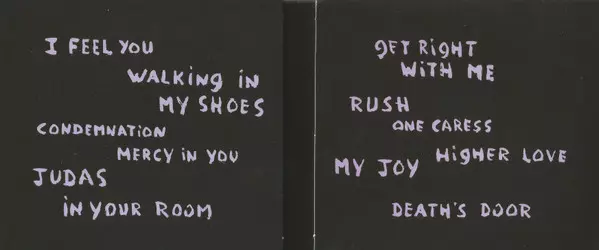 I FEEL YOU
WALKING IN
MY SHOES
CONDEMNATION
MERCY IN YOU
JUDAS
IN YOUR ROOM
GET RIGHT
WITH ME
RUSH
ONE CARESS
HIGHER LOVE
MY JOY
DEATH'S DOOR